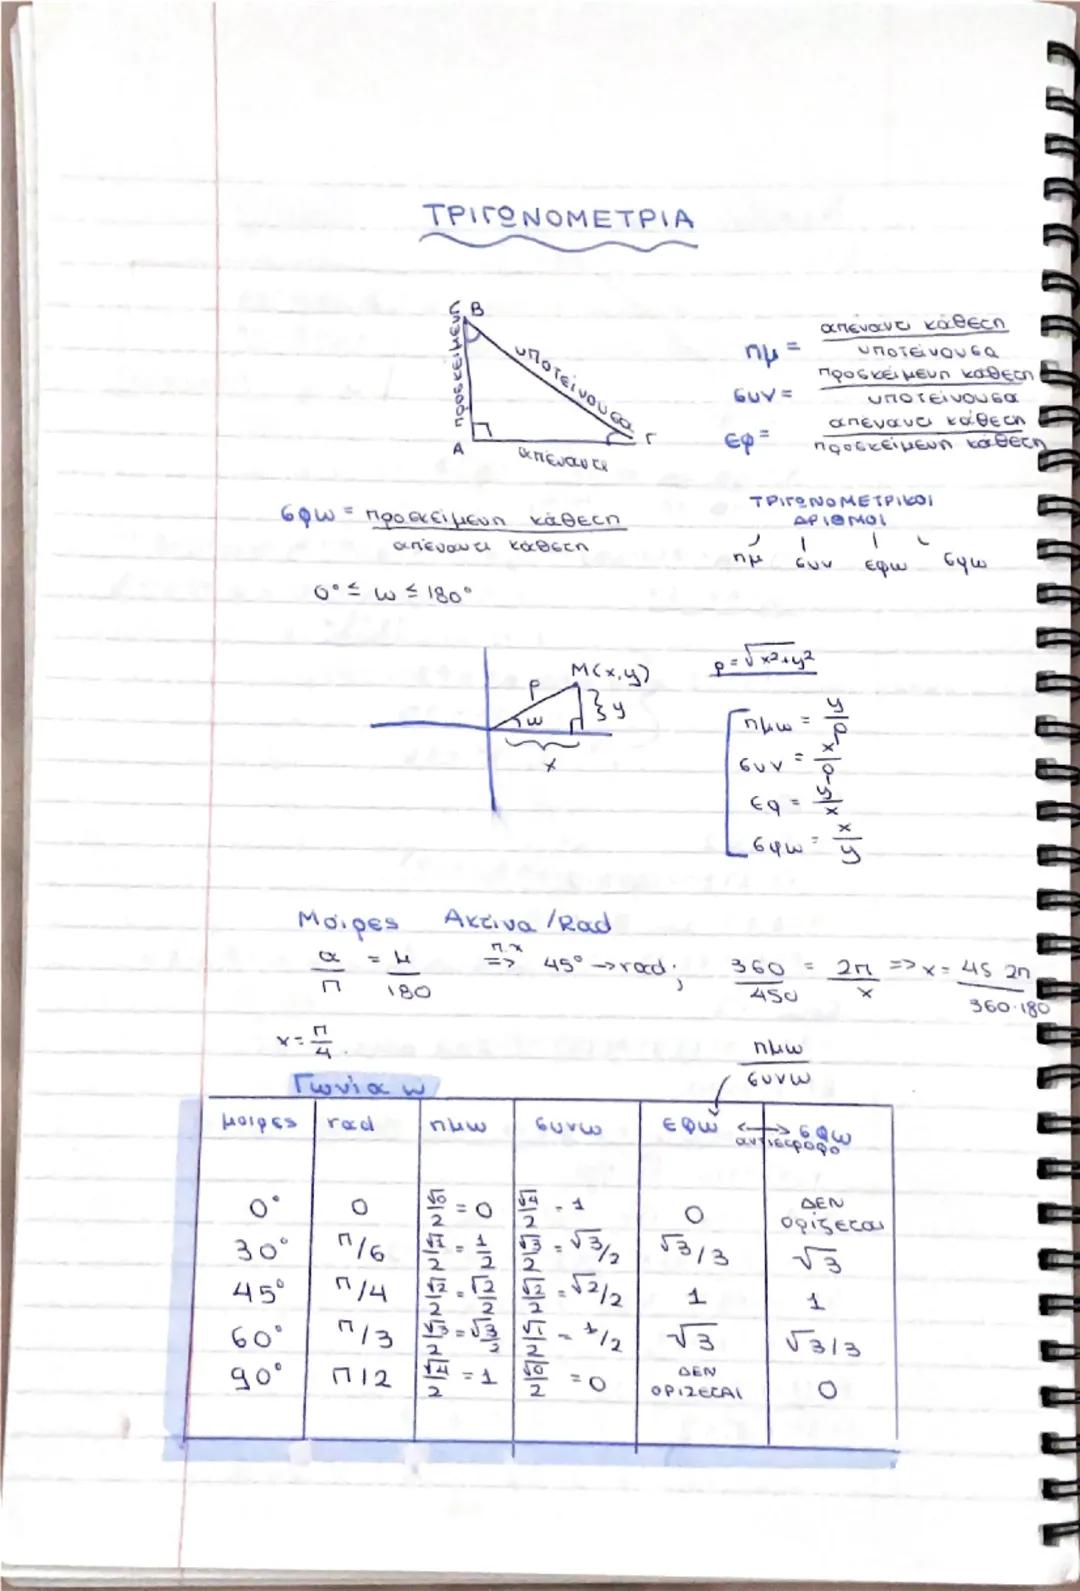 ΤΡΙΓΩΝΟΜΕΤΡΙΑ
Β
προσκείμενη
υποτείνουσα
Α
Γ
απέναντι
ημ = απέναντι κάθετη / υποτείνουσα
συν = προσκείμενη κάθετη / υποτείνουσα
εφ = απέναντι κάθετη / προσκείμενη κάθετη
σφω = προσκείμενη κάθετη / απέναντι κάθετη
ΤΡΙΓΩΝΟΜΕΤΡΙΚΟΙ
ΑΡΙΘΜΟΙ
ημ συν εφω σφω
0° ≤ ω ≤ 180°
Μ(x,y)
ρ
ω
y
x
ρ = √x²+y²
ημω = y/ρ
συν = x/ρ
εφ = y/x
σφω = x/y
Μοίρες Ακτίνα /Rad
α/π = μ/180 π.χ => 45° → rad; 360/450 = 2π/x => x = 45 2π / 360·180
x = π/4.
ημω / συνω
Γωνία ω
μοιρες rad ημω συνω εφω ↔ σφω
αντίστροφο
0° 0 √0/2 = 0 √4/2 = 1 0 ΔΕΝ ορίζεται
30° π/6 √1/2 = 1/2 √3/2 = √3/2 √3/3 √3
45° π/4 √2/2 = √2/2 √2/2 = √2/2 1 1
60° π/3 √3/2 = √3/2 √1/2 = 1/2 √3 √3/3
90° π/2 √4/2 = 1 √0/2 = 0 ΔΕΝ ΟΡΙΖΕΤΑΙ 0